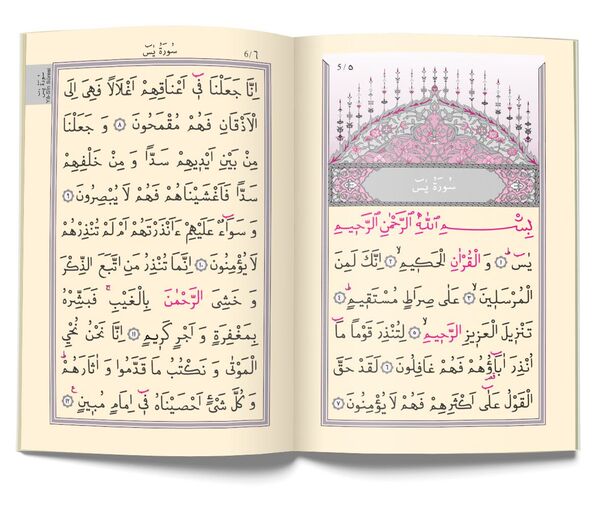 ٥ / 5
سُورَةُ يٰسٓ
بِسْمِ اللّٰهِ الرَّحْمٰنِ الرَّحِيمِ
يٰسٓ ﴿١﴾ وَ الْقُرْاٰنِ الْحَكِيمِ ﴿٢﴾ اِنَّكَ لَمِنَ
الْمُرْسَلِينَ ﴿٣﴾ عَلٰى صِرَاطٍ مُسْتَقِيمٍ ﴿٤﴾
تَنْزِيلَ الْعَزِيزِ الرَّحِيمِ ﴿٥﴾ لِتُنْذِرَ قَوْمًا مَٓا
اُنْذِرَ اٰبَٓاؤُهُمْ فَهُمْ غَافِلُونَ ﴿٦﴾ لَقَدْ حَقَّ
الْقَوْلُ عَلٰٓى اَكْثَرِهِمْ فَهُمْ لَا يُؤْمِنُونَ ﴿٧﴾
٦ / 6
سُورَةُ يٰسٓ
سُورَةُ يٰسٓ
Yâ-Sîn Suresi
اِنَّا جَعَلْنَا فِٓى اَعْنَاقِهِمْ اَغْلَالًا فَهِىَ اِلَى
الْاَذْقَانِ فَهُمْ مُقْمَحُونَ ﴿٨﴾ وَ جَعَلْنَا
مِنْ بَيْنِ اَيْدِيهِمْ سَدًّا وَ مِنْ خَلْفِهِمْ
سَدًّا فَاَغْشَيْنَاهُمْ فَهُمْ لَا يُبْصِرُونَ ﴿٩﴾
وَ سَوَٓاءٌ عَلَيْهِمْ ءَاَنْذَرْتَهُمْ اَمْ لَمْ تُنْذِرْهُمْ
لَا يُؤْمِنُونَ ﴿١٠﴾ اِنَّمَا تُنْذِرُ مَنِ اتَّبَعَ الذِّكْرَ
وَ خَشِىَ الرَّحْمٰنَ بِالْغَيْبِ فَبَشِّرْهُ
بِمَغْفِرَةٍ وَ اَجْرٍ كَرِيمٍ ﴿١١﴾ اِنَّا نَحْنُ نُحْيِى
الْمَوْتٰى وَ نَكْتُبُ مَا قَدَّمُوا وَ اٰثَارَهُمْ
وَ كُلَّ شَىْءٍ اَحْصَيْنَاهُ فِٓى اِمَامٍ مُبِينٍ ﴿١٢﴾